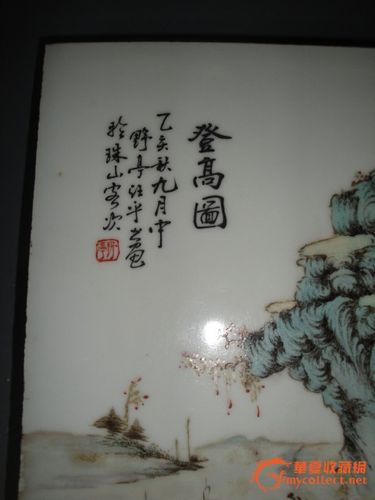 登高圖
乙亥秋九月中
野亭汪平画
於珠山客次
華夏收藏網
mycollect.net